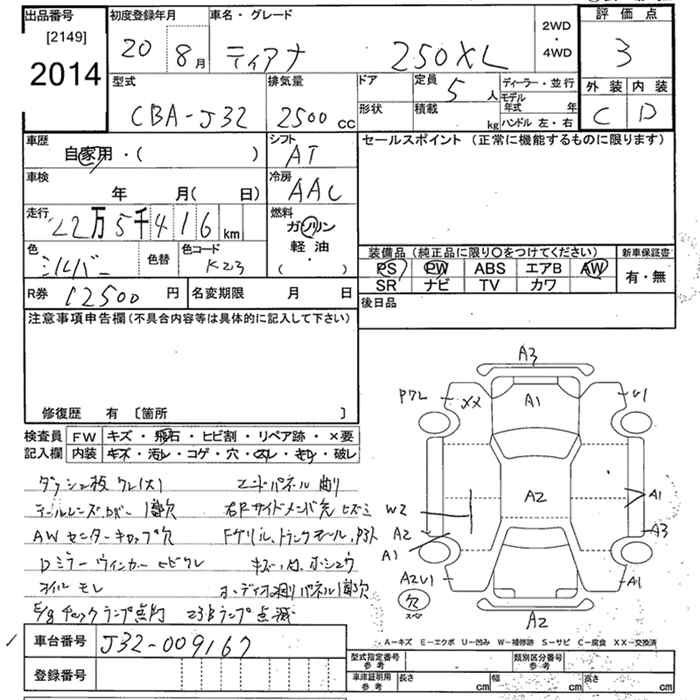 出品番号
[2149]
2014
初度登録年月
20 8月
車名・グレード
ティアナ 250XL
2WD
・
4WD
評価点
3
外装 内装
C D
型式
CBA-J32
排気量
2500 cc
ドア
形状
定員 5 人
積載 kg
ディーラー・並行
モデル年式 年
ハンドル 左・右
車歴
自家用・( )
シフト
AT
セールスポイント (正常に機能するものに限ります)
車検
年 月( 日)
冷房
AAC
走行
22万5千416 km
燃料
ガソリン
軽油
( ・ )
色
シルバー
色替
色コード
K23
装備品 (純正品に限り〇をつけてください)
新車保証書
PS PW ABS エアB AW
SR ナビ TV カワ
有・無
R券 12500 円
名変期限 月 日
後日品
注意事項申告欄(不具合内容等は具体的に記入して下さい)
修復歴 有 〔箇所 〕
検査員
記入欄
FW キズ・飛石・ヒビ割・リペア跡・×要
内装 キズ・汚レ・コゲ・穴・スレ・キレ・破レ
ダッシュ板クレ(大) エンドパネル曲り
テールレンズカバー1個欠 右Fサイドメンバ先ヒズミ
AWセンターキャップ欠 Fグリル、トランクモール、
Dミラーウィンカーヒビワレ キズ・凹、ホシュウ
オイルモレ オーディオ廻りパネル1個欠
E/gチェックランプ点灯 ランプ点滅
A3
P7L XX A1 U1
A2
W2
A2
A1
A1
A3
A2U1
A1
欠
スペア
A2
A-キズ E-エクボ U-凹み W-補修跡 S-サビ C-腐食 XX-交換済
車台番号 J32-009167
登録番号
型式指定番号
参考
類別区分番号
参考
車庫証明用
参考
長さ cm 幅 cm 高さ cm